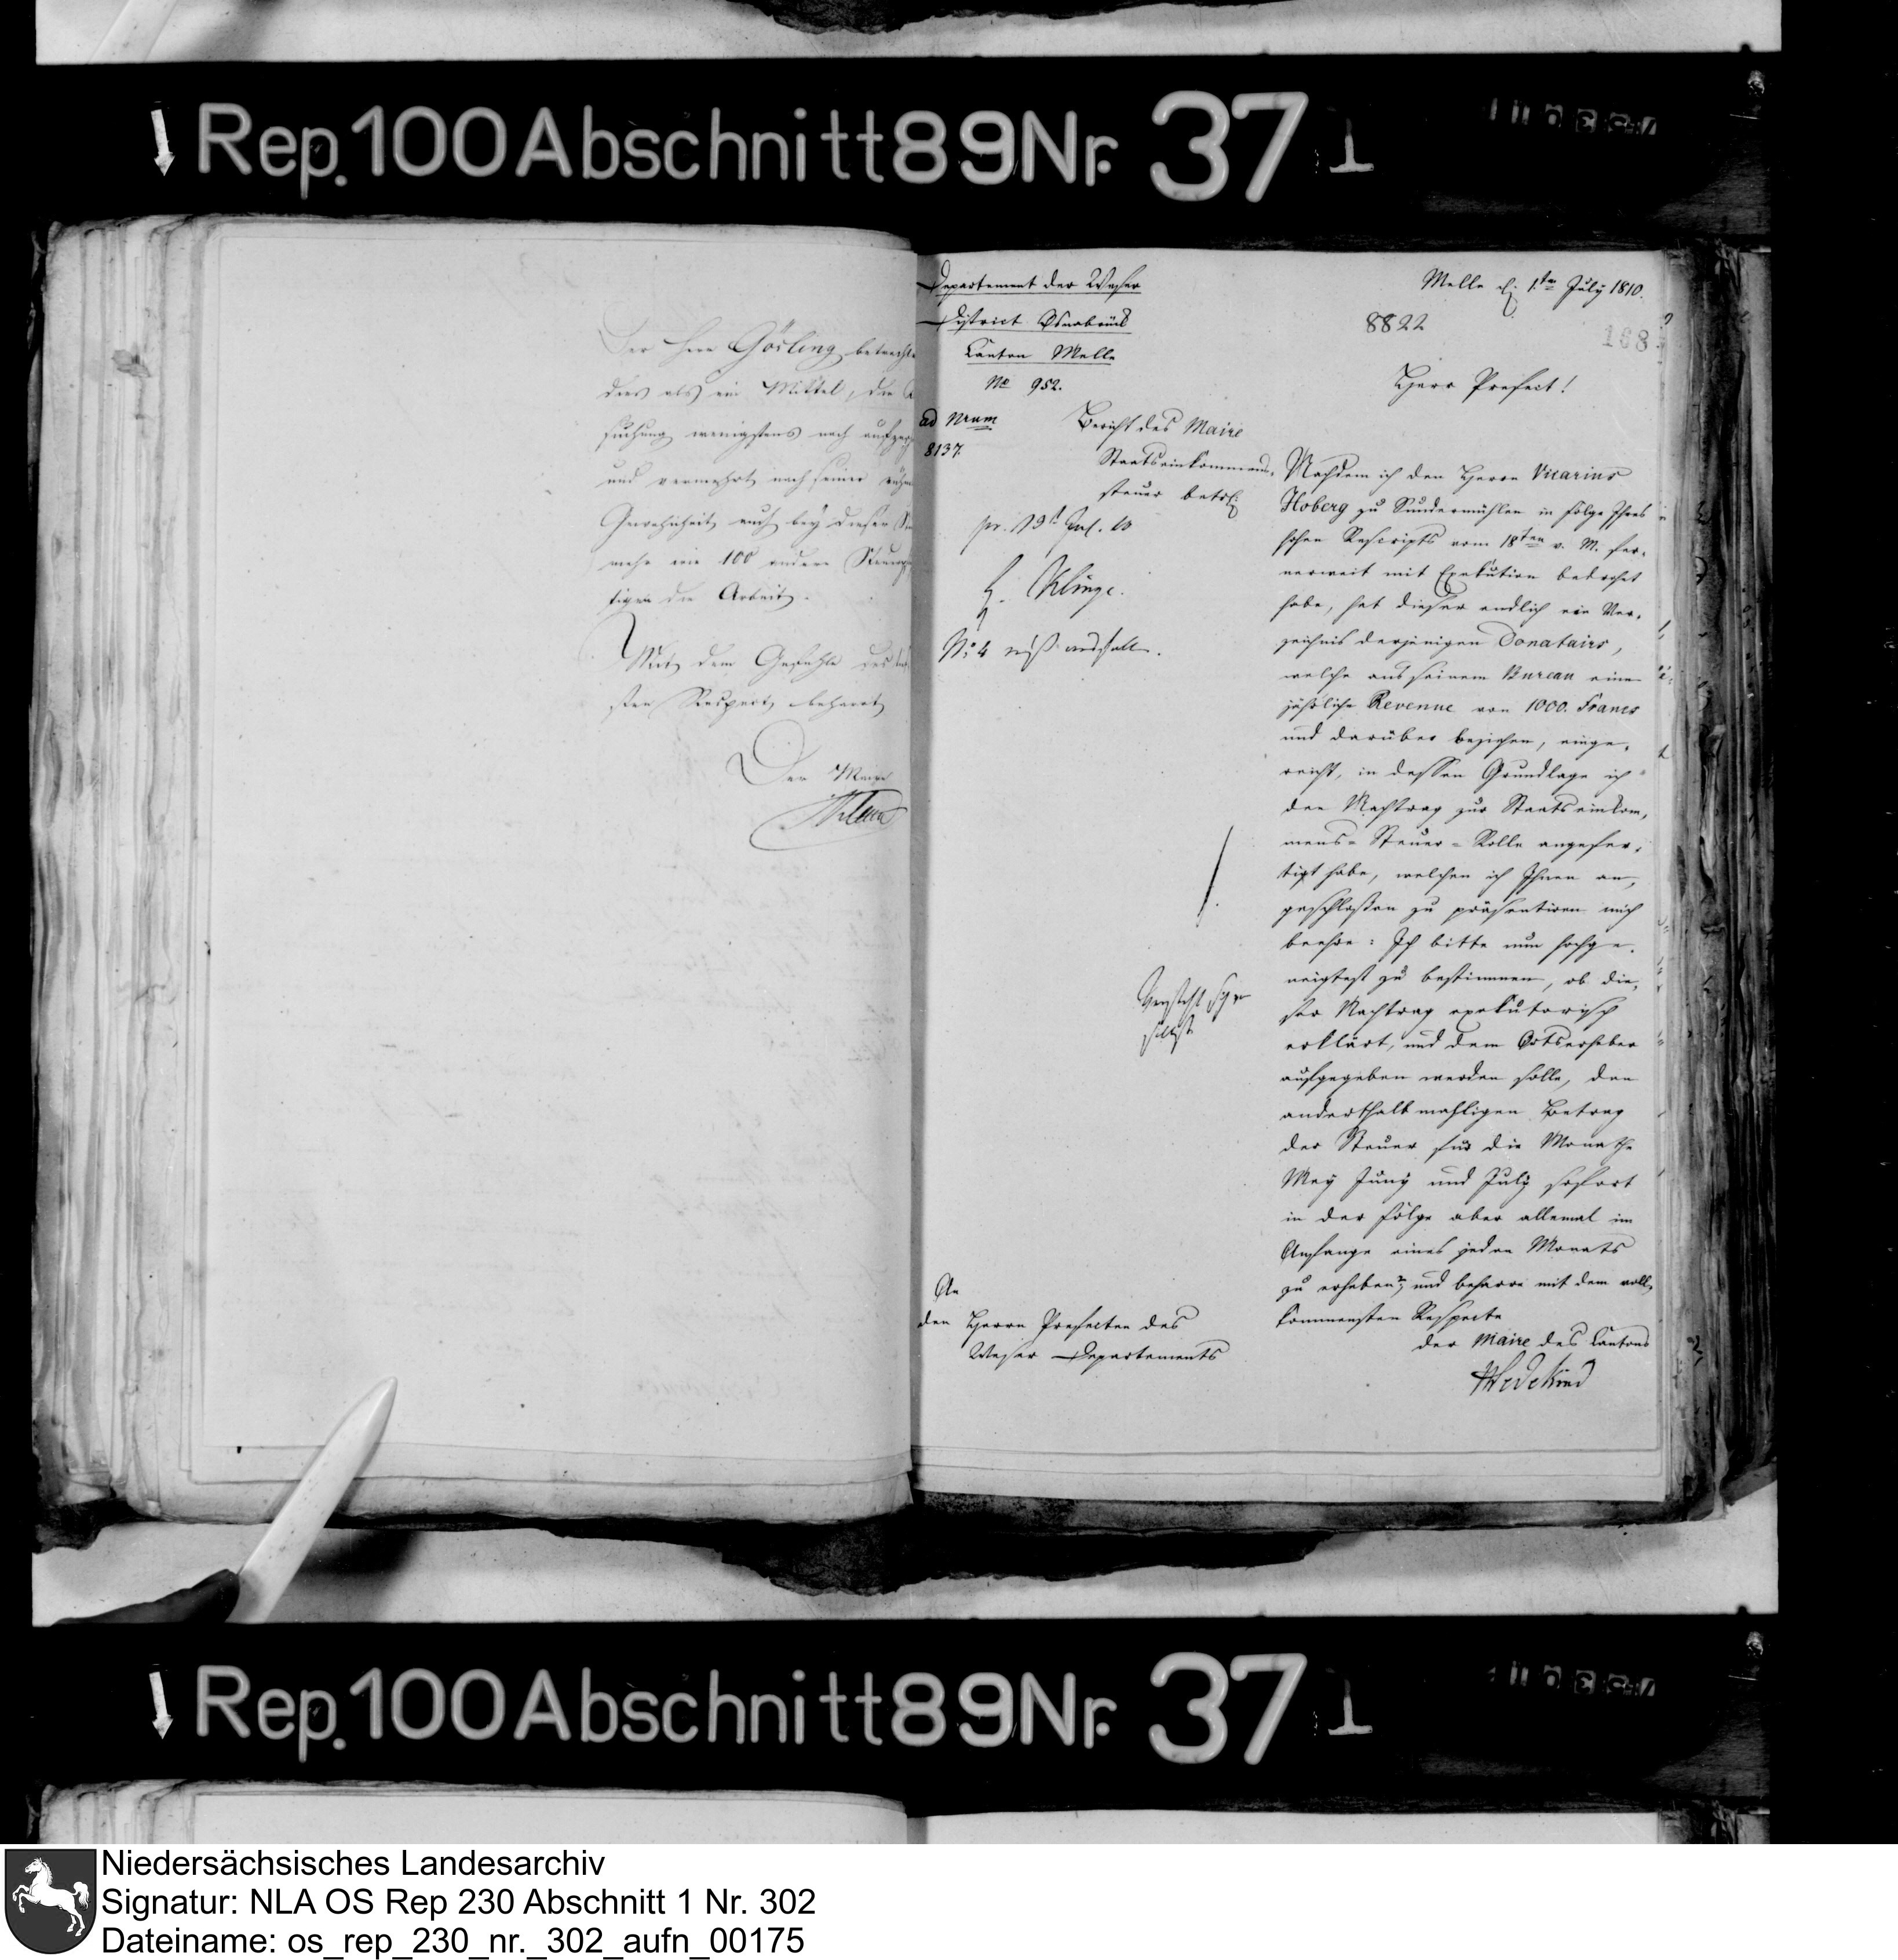 Rep. 100 Abschnitt 89 Nr. 37 1
Der Herr Gösling betracht
dies als ein Mittel, die
suchung wenigstens noch
und vermehrt nach seiner
Gewohnheit, auch bey dieser
mehr wie 100 andere
tigen die Arbeit.
Mit dem Gefühle des
sten Respect beharrt
Der Maire
Departement der Weser
District Osnabrück
Canton Melle
No 952.
ad Nrum
8137.
Bericht des Maire
Staatseinkommens-
steuer betr.
Klinge.
An
den Herrn Prefecten des
Weser Departements
Melle d. 1ten July 1810.
8822
168
Herr Prefect!
Nachdem ich den Herrn Vicarius
Hoberg zu Sundermühlen in Folge Ihres
hohen Rescripts vom 18ten v. M. fer-
nerweit mit Exekution bedrohet
habe, hat dieser endlich ein Ver-
zeichnis derjenigen Donatairs,
welche aus seinem Bureau eine
jährliche Revenue von 1000. Francs
und darüber beziehen, einge-
reicht, in dessen Grundlage ich
den Nachtrag zur Staatseinkom-
mens-Steuer-Rolle angefer-
tigt habe, welchen ich Ihnen an-
geschlossen zu präsentiren mich
beehre: Ich bitte nun hochge-
neigtest zu bestimmen, ob die-
ser Nachtrag exekutorisch
erklärt, und dem Ortserheber
aufgegeben werden solle, den
anderthalbmahligen Betrag
der Steuer für die Monathe
May Juny und July sofort
in der Folge aber allemal im
Anfange eines jeden Monats
zu erheben?, und beharre mit dem voll-
kommensten Respecte
der Maire des Cantons
Wedekind
Rep. 100 Abschnitt 89 Nr. 37 1
Niedersächsisches Landesarchiv
Signatur: NLA OS Rep 230 Abschnitt 1 Nr. 302
Dateiname: os_rep_230_nr._302_aufn_00175